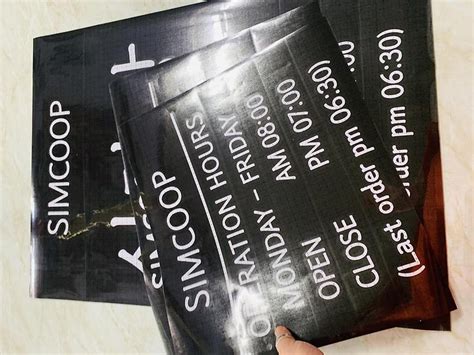 SIMCOOP
SIMCOOP
SIMCOOP
OPERATION HOURS
MONDAY – FRIDAY
OPEN AM 08:00
CLOSE PM 07:00
(Last order pm 06:30)
pm 06:30)